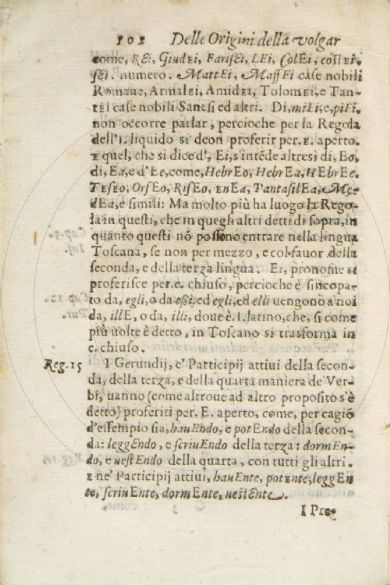 102 Delle Origini della volgar
come, REi, GiudEi, FarisEi, LEi, ColEi, così ei,
sEi. numero. MattEi, MaffEi case nobili
Romane, ArnalEi, AmidEi, TolomEi, e Tan-
rEi case nobili Sanesi ed altri. Di, miEi, e, piEi,
non occorre parlar, percioche per la Regola
dell'I. liquido si deon proferir per. E. aperto.
E quel, che si dice d', Ei, s'intẽde altresi di, Eo,
di, Ea, e d'Ee, come, HebrEo, HebrEa, HEbrEe.
TEsEo, OrfEo, RifEo, EnEa, PantasilEa, Me-
dEa, e simili: Ma molto più ha luogo la Rego-
la in questi, che in quegli altri detti di sopra, in
quanto questi nõ possono entrare nella lingua
Toscana, se non per mezzo, e col fauor della
seconda, e della terza lingua. Ei, pronome si
proferisce per. e. chiuso, percioche è sincopa-
to da, egli, o da essi: ed egli, ed elli uengono a noi
da, illE, o da, illi, doue è. I. latino, che, si come
più uolte è detto, in Toscano si trasforma in
e. chiuso.
Reg. 15 I Gerundij, e' Participij attiui della secon-
da, della terza, e della quarta maniera de' Ver-
bi, uanno (come altroue ad altro proposito s'è
detto) proferiti per. E. aperto, come, per cagiõ
d'essempio sia, hauEndo, e potEndo della secon-
da: leggEndo, e scriuEndo della terza: dormEn-
do, e uestEndo della quarta, con tutti gli altri.
E ne' Participij attiui, hauEnte, potente, leggEn
te, scriuEnte, dormEnte, uestEnte.
I Pre-